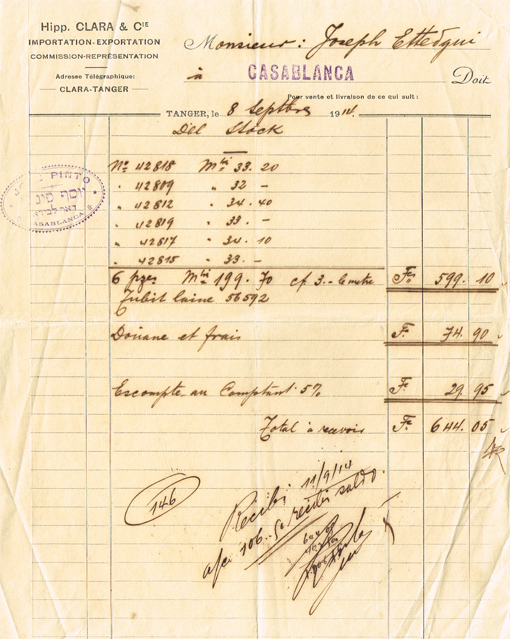 Hipp. CLARA & Cie
IMPORTATION-EXPORTATION
COMMISSION-REPRÉSENTATION
Adresse Télégraphique:
CLARA-TANGER
Monsieur: Joseph Ettedgui
à CASABLANCA Doit
Pour vente et livraison de ce qui suit:
TANGER, le 8 Septbre 1914.
Del Stock
PINTO
יוסף פינטו
CASABLANCA
No 42818 Mtr 33. 20
" 42809 " 32 —
" 42812 " 34. 40
" 42819 " 33. —
" 42817 " 34. 10
" 42815 " 33. —
6 pzes Mtr 199. 70 cf 3.- le metre Fcs 599. 10
laine 56592
Douane et frais F. 74. 90
Escompte au Comptant 5% Fc 29. 95
Total à recevoir Fc 644. 05
146
Recibi 11/9/14
106.50 recibi saldo.